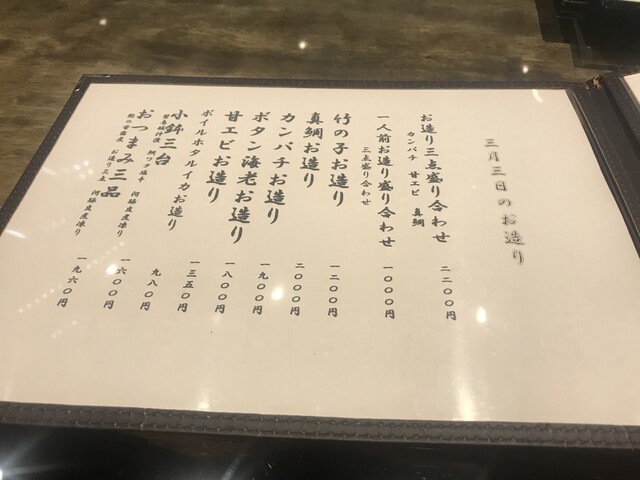 三月三日のお造り
お造り三点盛り合わせ 二二〇〇円
カンパチ 甘エビ 真鯛
一人前お造り盛り合わせ 一〇〇〇円
三点盛り合わせ
竹の子お造り 一二〇〇円
真鯛お造り 二〇〇〇円
カンパチお造り 一九〇〇円
ボタン海老お造り 一八〇〇円
甘エビお造り 一三五〇円
ボイルホタルイカお造り 九八〇円
小鉢三台 一六〇〇円
河豚皮煮凍り
おつまみ三品 一九六〇円
お造り三点 河豚皮煮凍り